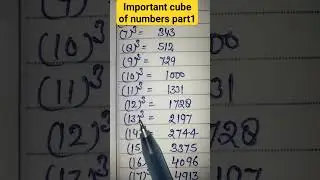 Important cube
of numbers part1
(7)³ = 343
(8)³ = 512
(9)³ = 729
(10)³ = 1000
(11)³ = 1331
(12)³ = 1728
(13)³ = 2197
(14)³ = 2744
(15)³ = 3375
(16)³ = 4096
(17)³ = 4913